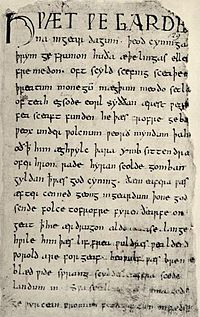 HǷÆT ǷE GARDE
na ingear dagum. þeod cyninga
þrym ge frunon huða æþelingas elle
fre medon. oft scyld scefing sceaþe
þreatum monegū mægþum meodo setla
of teah egsode eorl syððan ærest ƿear
fea sceaft funden he þæs frofre geba
ƿeox under ƿolcnum ƿeorð myndum þah
oð ꝥ him æghƿylc þara ymb sittendra
ofer hron rade hyran scolde gomban
gyldan ꝥ ƿæs god cyning. ðæm eafera ƿæs
æfter cenned geong ingeardum þone god
sende folce tofrofre fyren ðearfe on
geat ꝥ hie ær drugon aldor ase. lange
hƿile him þæs lif frea ƿuldres ƿealdend
ƿorold are for geaf. beoƿulf ƿæs breme
blæd ƿide sprang scyldes eafera scede
landum in. Sƿa sceal uma gode
ge ƿyrcean fromum feoh giftum